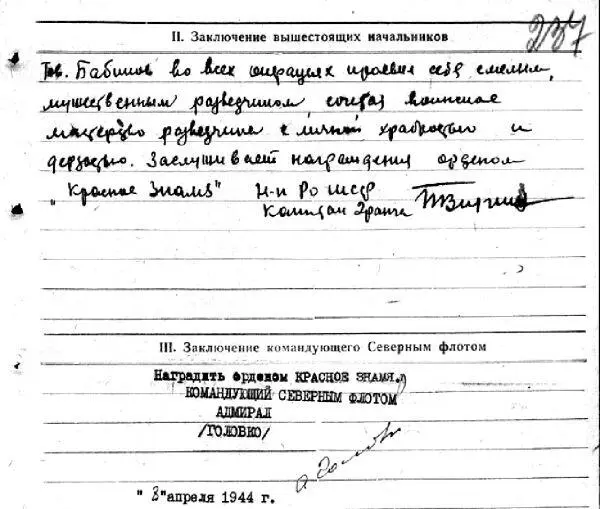 237
II. Заключение вышестоящих начальников
Тов. Бабиков во всех операциях проявил себя смелым,
мужественным разведчиком, сочетая воинское
мастерство разведчика с личной храбростью и
дерзостью. Заслуживает награждения орденом
"Красное Знамя" Н-к РО штСФ
Капитан 2ранга
III. Заключение командующего Северным флотом
Наградить орденом КРАСНОЕ ЗНАМЯ.
КОМАНДУЮЩИЙ СЕВЕРНЫМ ФЛОТОМ
АДМИРАЛ
/ГОЛОВКО/
"апреля 1944 г.